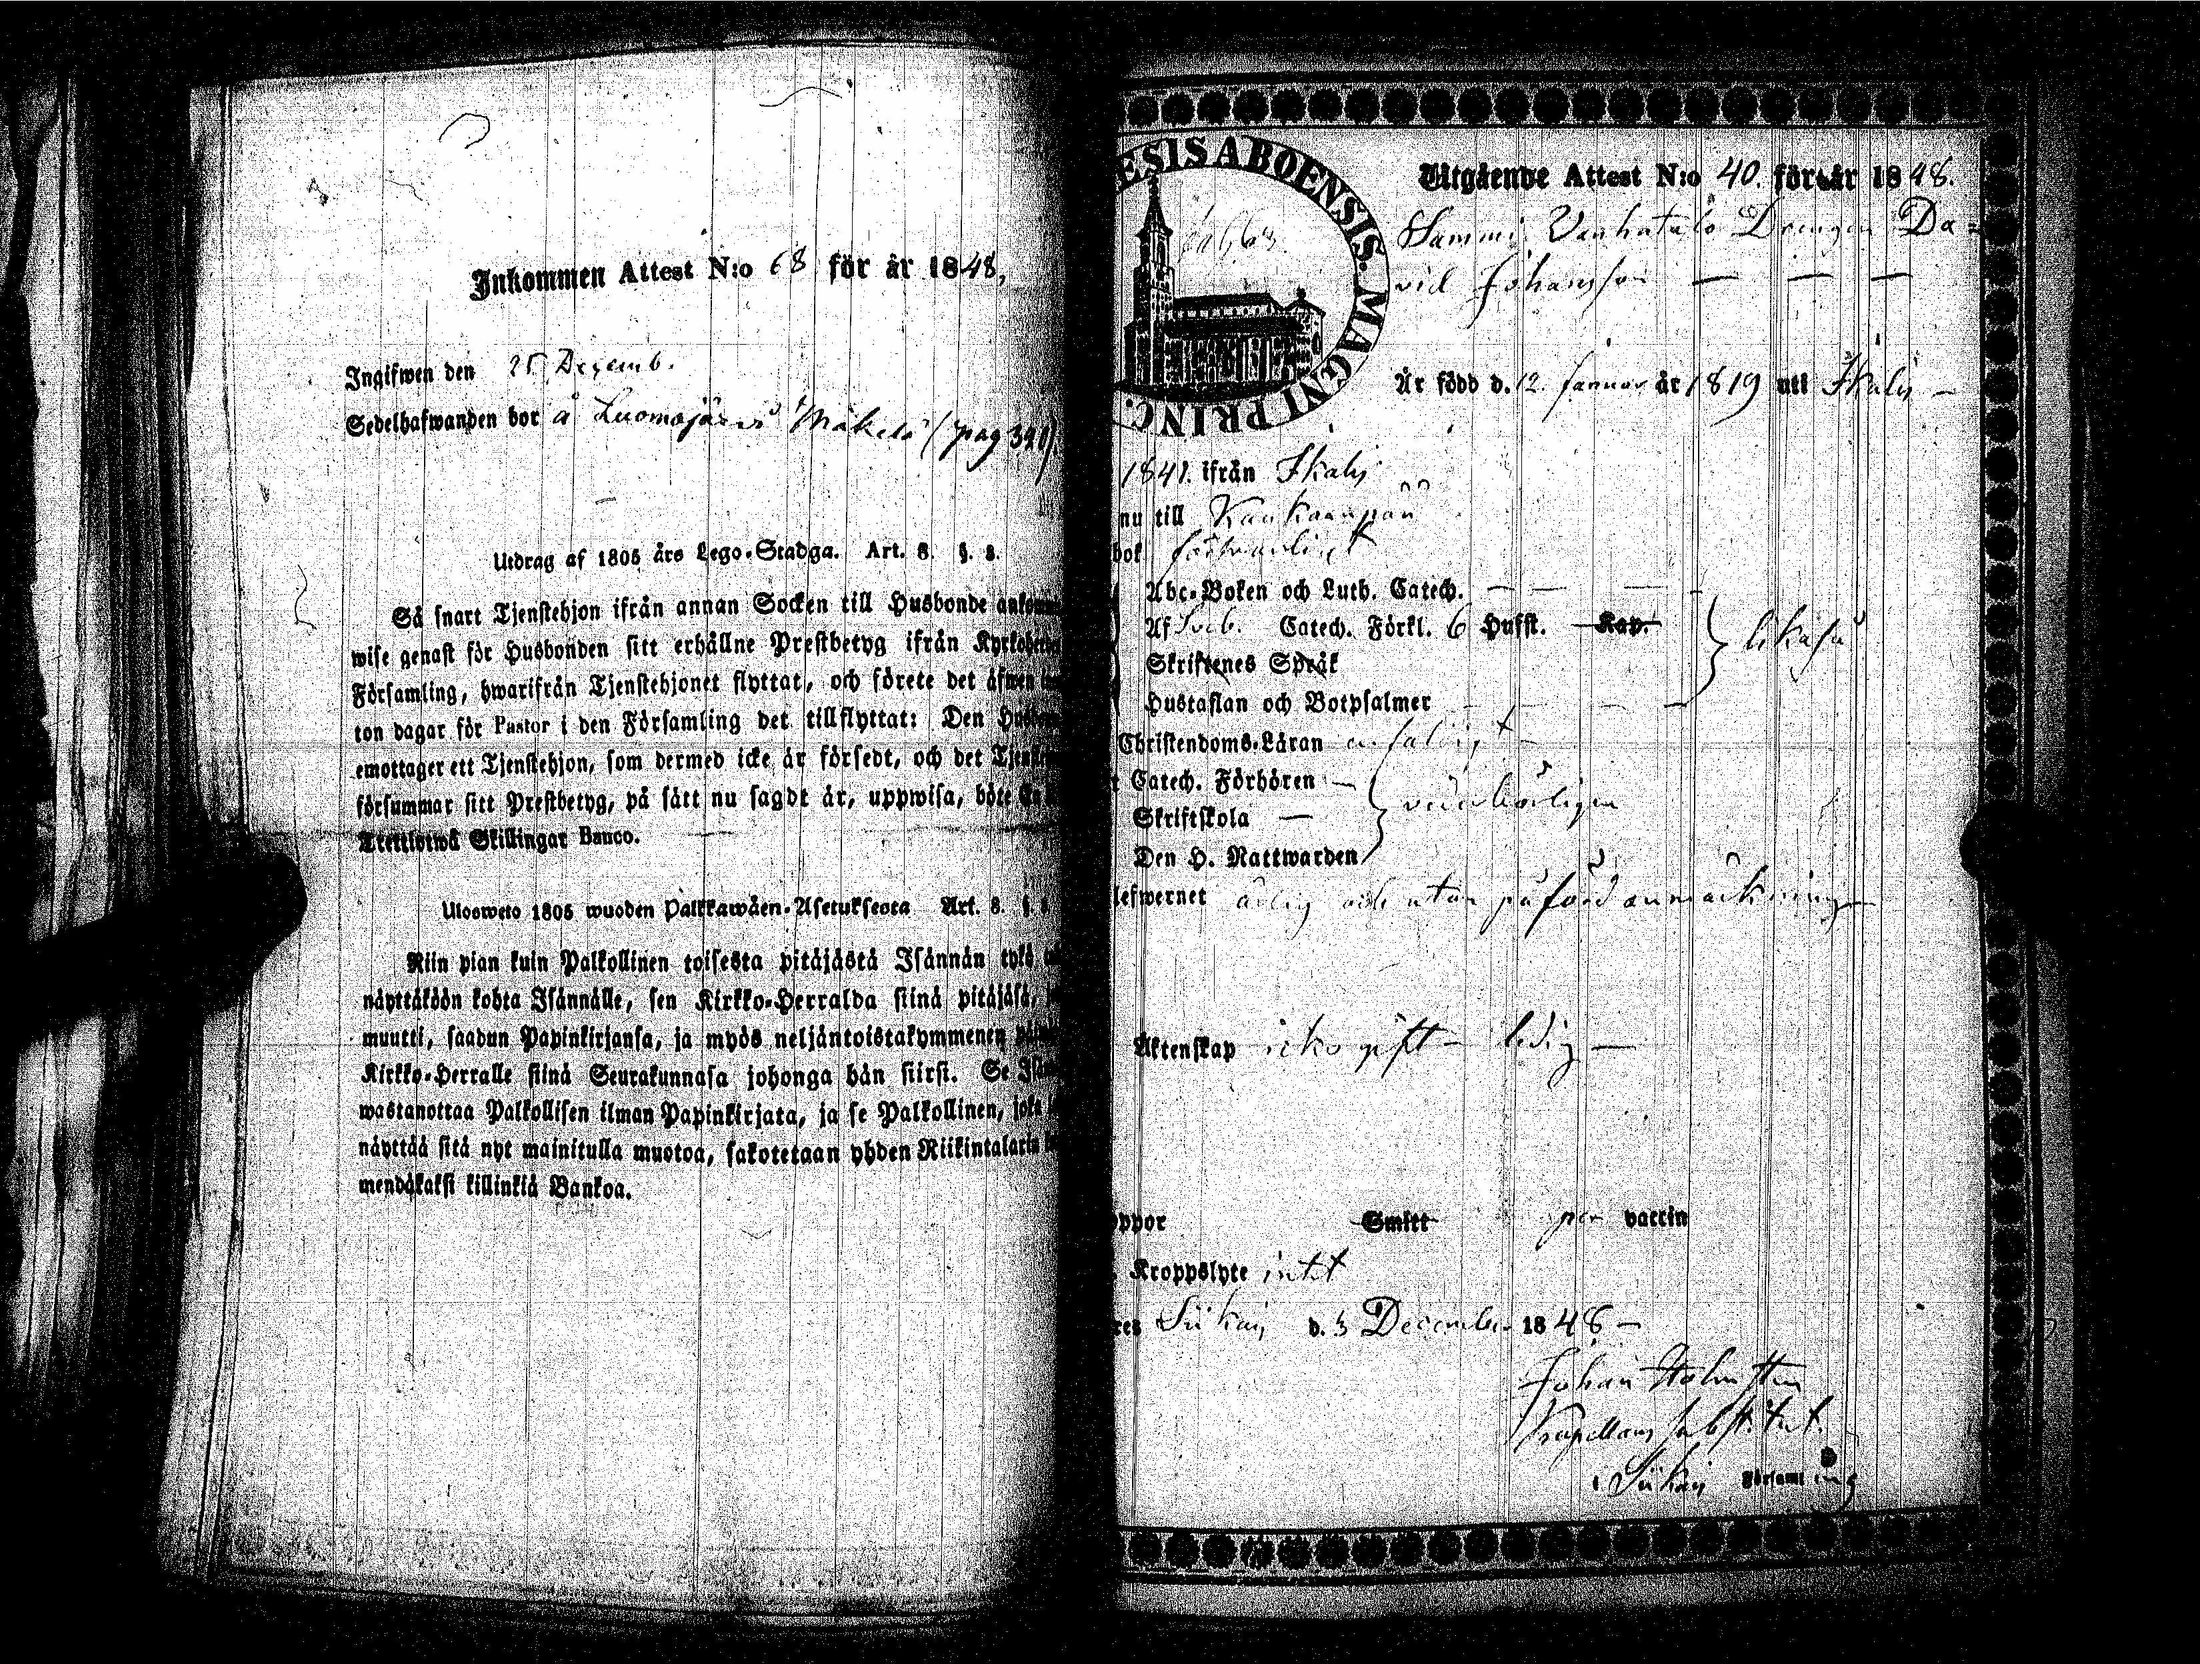 Inkommen Attest N:o 68 för år 1848,
Ingifwen den 25 Decemb.
Sedelhafwanden bor å Luomajärvi Mäkelä (pag 391)
Utdrag af 1805 års Lego-Stadga. Art. 8. §. 8.
Så snart Tjenstehjon ifrån annan Socken till Husbonde
wise genast för Husbonden sitt erhållne Prestbetyg ifrån
Församling, hwarifrån Tjenstehjonet flyttat, och förete det äfwen
ton dagar för Pastor i den Församling det tillflyttat: Den
emottager ett Tjenstehjon, som dermed icke är försedt, och det
försummar sitt Prestbetyg, på sätt nu sagdt är, uppwisa, böte
Trettiotwå Skillingar Banco.
Ulosweto 1805 wuoden Palkkawäen-Asetuksesta Art. 8. §.
Niin pian kuin Palkollinen toisesta pitäjästä Isännän tykö
näyttäköön kohta Isännälle, sen Kirkko-Herralda siinä pitäjäsä,
muutti, saadun Papinkirjansa, ja myös neljäntoistakymmenen
Kirkko-Herralle siinä Seurakunnasa johonga hän siirsi. Se
wastanottaa Palkollisen ilman Papinkirjata, ja se Palkollinen, joka
näyttää sitä nyt mainitulla muotoa, sakotetaan yhden Riikintalarin
mendäkaksi killinkiä Bankoa.
ESIS ABOENSIS. MAGNI PRINC.
Utgående Attest N:o 40. för år 1848.
Sammi Vanhatalo Drengen Da=
vid Johansson — — —
Är född d. 12. Januar år 1819 uti Ikalis —
1841. ifrån Ikalis
nu till Kankaanpää
bok försvarligt
Abc-Boken och Luth. Catech. — —
Af Sveb. Catech. Förkl. 6 Hufst. Kap. likaså
Skriftenes Språk
Hustaflan och Botpsalmer
Christendoms-Läran enfaldigt —
Catech. Förhören —
Skriftskola — vederbörligen
Den H. Nattwarden
lefwernet ärlig och utan påförd anmärkning —
Äktenskap icke gift — ledig —
oppor Smitt per vaccin
Kroppslyte intet
res Siikais d. 3 December 1848 —
Johan Holmsten
Kapellans substitut.
i Siikais Församling